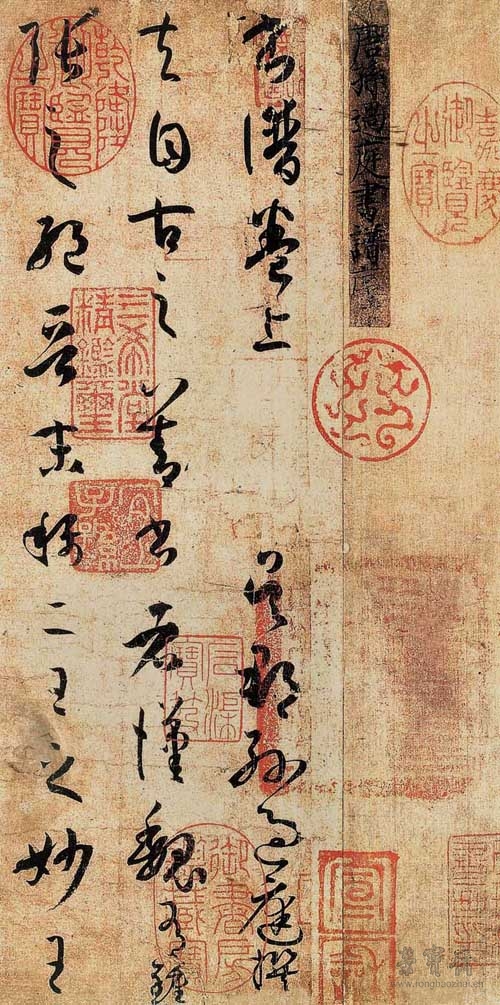 嘉慶御覽之寶
唐孫過庭書譜序
書譜卷上 吳郡孫過庭撰
夫自古之善書者漢魏有鍾
張之絕晉末稱二王之妙王
乾隆御覽之寶
三希堂精鑑璽
宜子孫
石渠寶笈